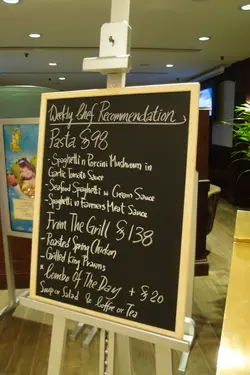 Weekly Chef Recommendation
Pasta $98
- Spaghetti in Porcini Mushroom in
Garlic Tomato Sauce
- Seafood Spaghetti w Cream Sauce
- Spaghetti w Farmers Meat Sauce
From The Grill $138
- Roasted Spring Chicken
- Grilled King Prawns
* Combo Of The Day + $20
Soup or Salad & Coffee or Tea